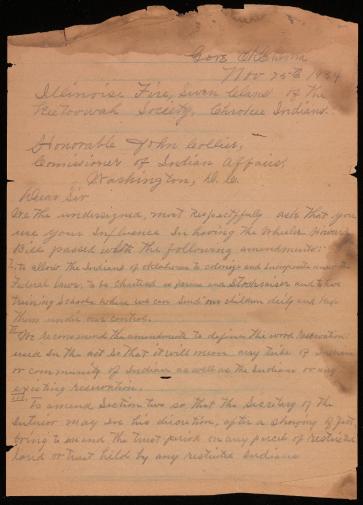 Gore Oklahoma
Nov 25th 1934
Illinoise Fire, Seven Clans of the
Keetoowah Society, Cherokee Indians.
Honorable John Collier,
Comissioner of Indian Affairs,
Washington, D. C.
Dear Sir
We the undersigned, most respectfully ask that you
use your influence in having the Wheeler Howard
Bill passed with the following amendments:
I. to allow the Indians of oklahoma to and under
Federal laws. to be chartered as farms and Stockraiser and to have
training Schools where we can send our children daily and keep
them under our control.
II We recommend the amendments to define the word reservation
used in the act so that it will mean any tribe of Indians
or community of Indians as well as the Indians or any
existing reservation.
III To amend Section two so that the Secretary of the
Interior may in his discretion, after a showing of Just,
to extend the trust period on any parcel of restricted
land or trust held by any restricted Indians